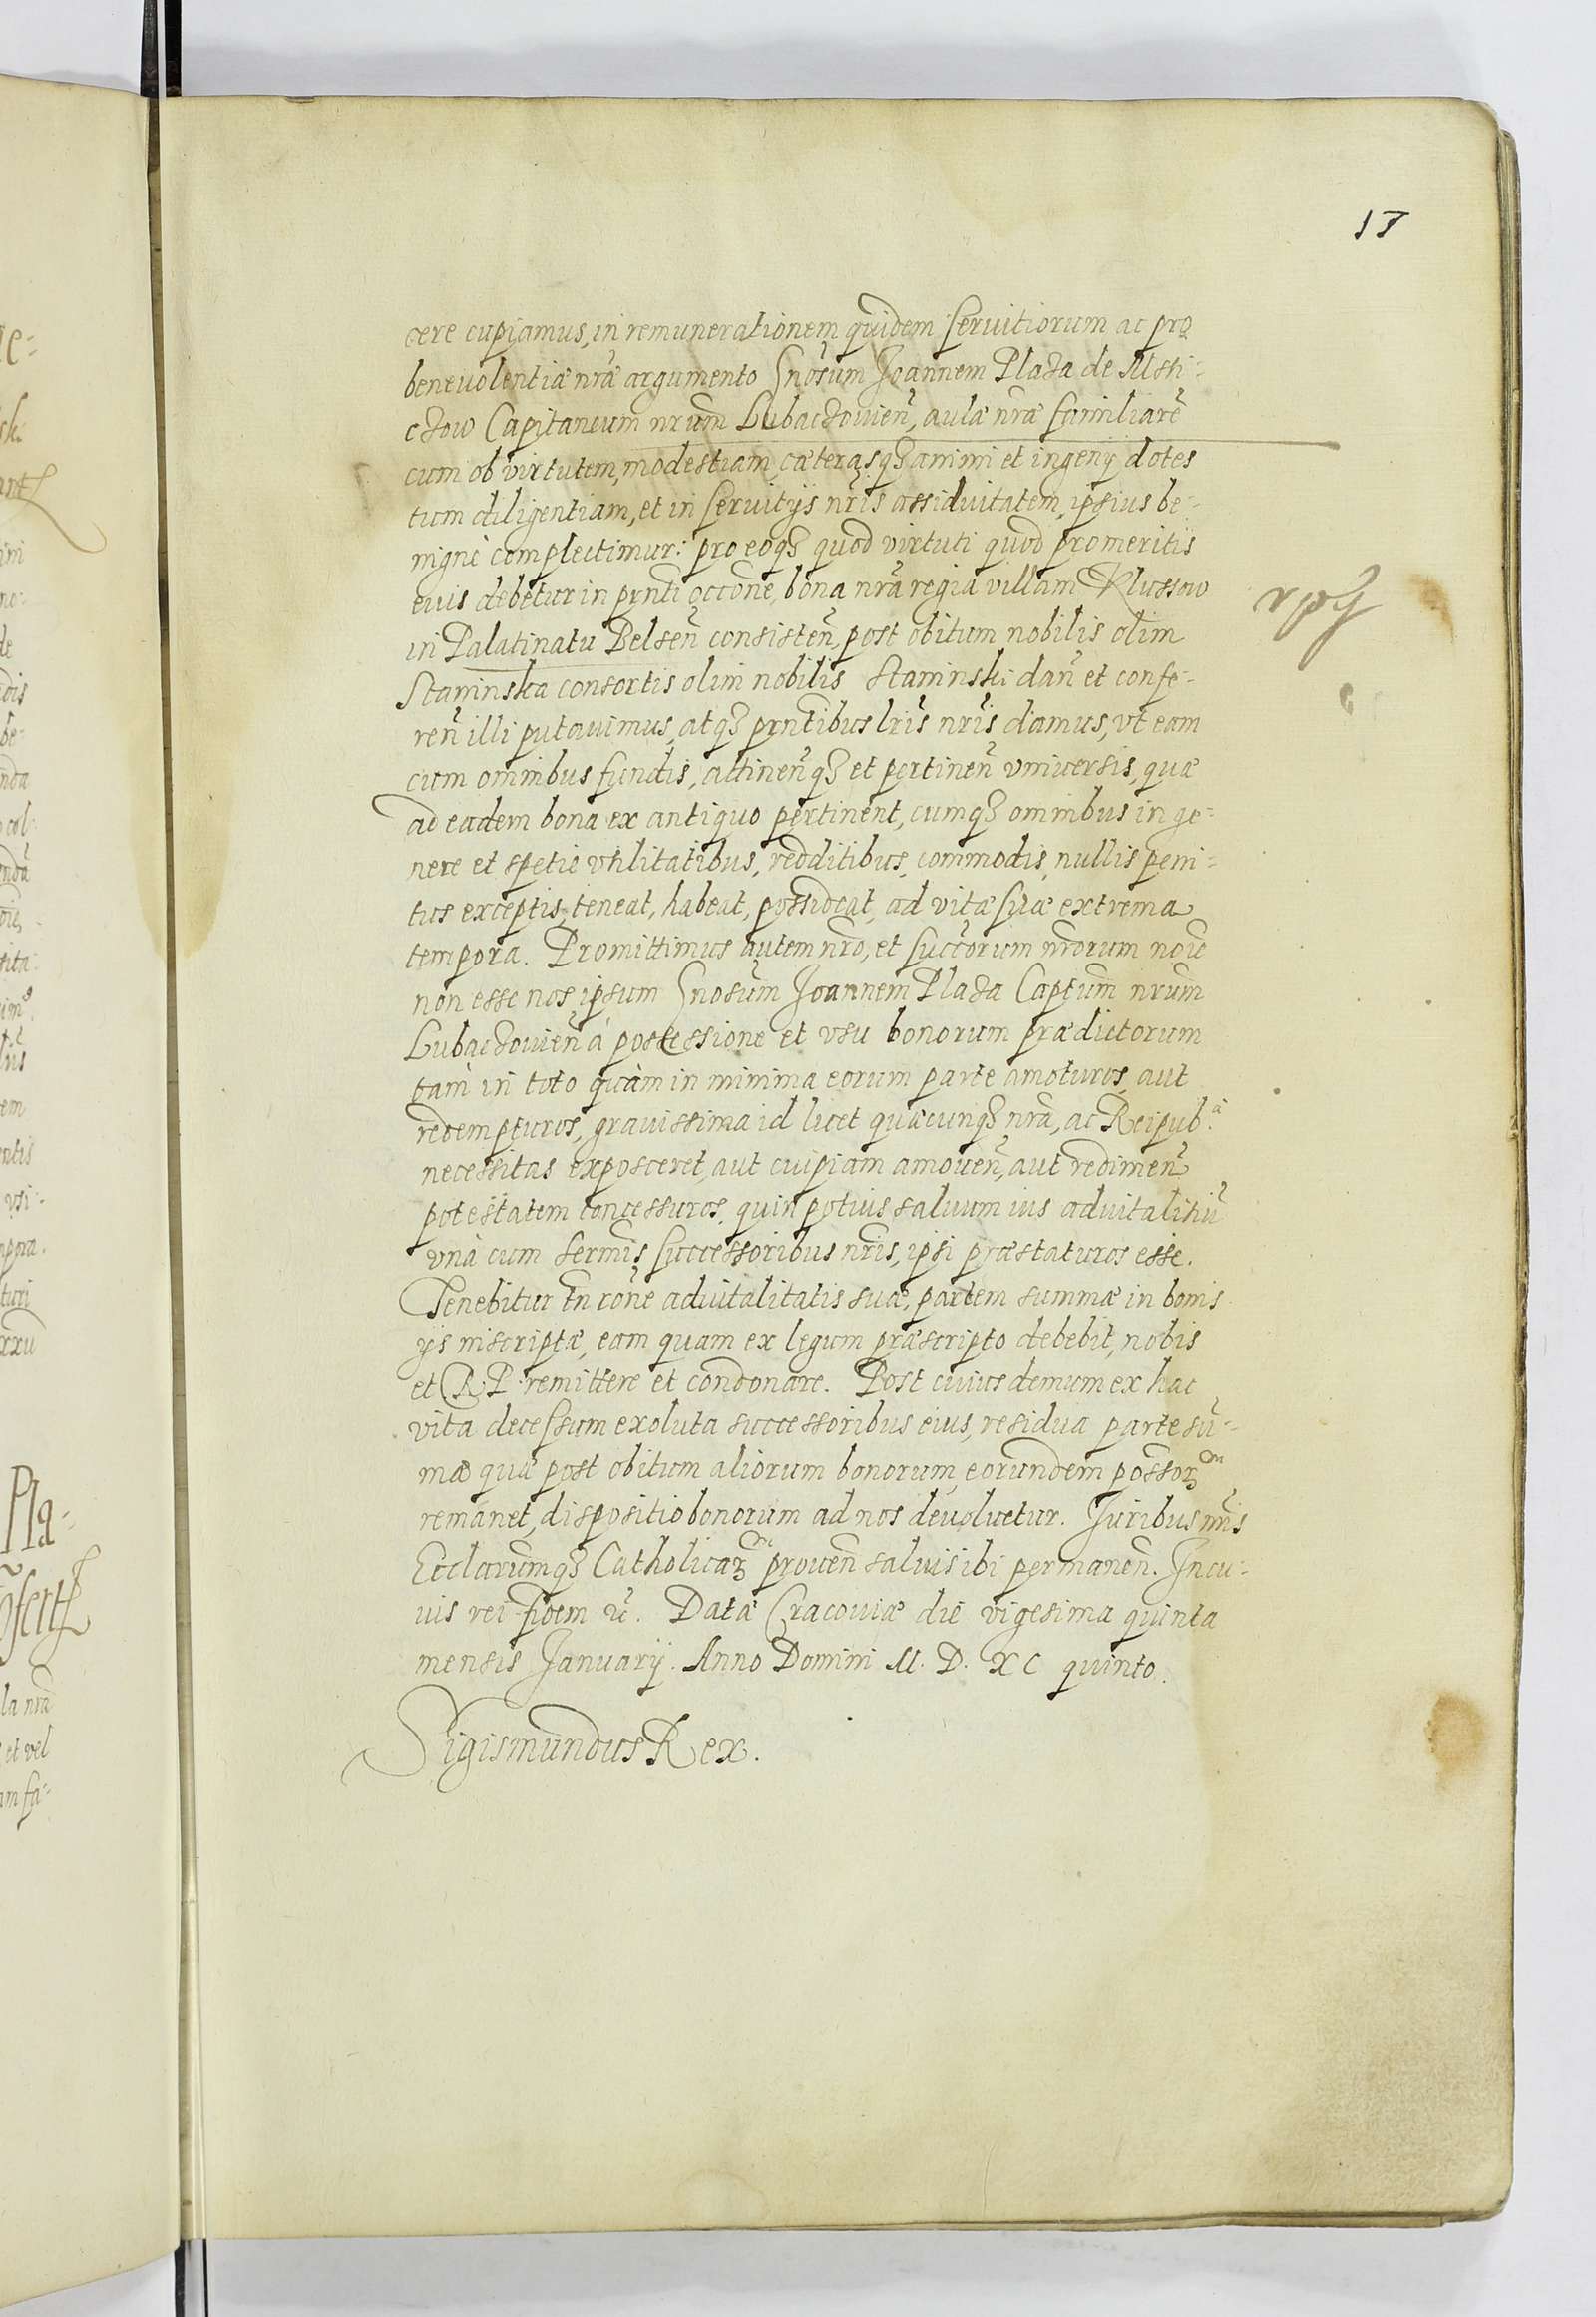 17
cere cupiamus, in remunerationem quidem seruitiorum ac pro
beneuolentiæ nr̃æ argumento Gnosum Joannem Plaza de Msti-
czow Capitaneum nr̃um Lubaczouien̄, aulæ nr̃æ familiarẽ
cum ob virtutem, modestiam, cæterasqʒ animi et ingenij dotes
tum diligentiam, et in seruitijs nr̃is assiduitatem, ipsius be-
nignè complectimur: pro eoqʒ quod virtuti quod promeritis
eius debetur in pr̃nti occõne, bona nr̃a regia villam Klussow
in Palatinatu Belsen̄ consisten̄, post obitum nobilis olim
Staninska consortis olim nobilis Staninski dan̄ et confe-
ren̄ illi putauimus, atqʒ pr̃ntibus lr̃is nr̃is damus, vt eam
cum omnibus fundis, attinen̄qʒ et pertinen̄ vniuersis, quæ
ad eadem bona ex antiquo pertinent, cumqʒ omnibus in ge-
nere et spetie vtilitatibus, redditibus, commodis, nullis peni-
tus exceptis, teneat, habeat, possideat, ad vitæ suæ extrema
tempora. Promittimus autem nr̃o, et succ̃orum nr̃orum noĩe
non esse nos ipsum Gnosum Joannem Plaza Captũm nr̃um
Lubaczouien̄ á possessione et vsu bonorum prædictorum
tam in toto quàm in minima eorum parte amoturos, aut
redempturos, grauissima id licet quæcunqʒ nr̃a, ac Reipub.ᵃ
necessitas exposceret, aut cuipiam amouen̄, aut redimen̄
potestatem concessuros, quin potius saluum ius aduitalitiũ
vnà cum Serm̃is successoribus nr̃is, ipsi præstaturos esse.
Tenebitur tñ rõne aduitalitatis suæ, partem summæ in bonis
ijs inscriptæ, eam quam ex legum præscripto debebit, nobis
et R. P. remittere et condonare. Post cuius demum ex hac
vita decessum exoluta successoribus eius, residua parte sũ-
mæ quæ post obitum aliorum bonorum eorundem possorʒ
remanet, dispositio bonorum ad nos deuoluetur. Juribus nr̃is
Ecclarumqʒ Catholicarʒ prouen̄ saluis ibi permanen̄. In cu-
uis rei fidem ẽt. Data Cracouiæ die vigesima quinta
mensis Januarij. Anno Domini M. D. XC quinto.
Sigismundus Rex.